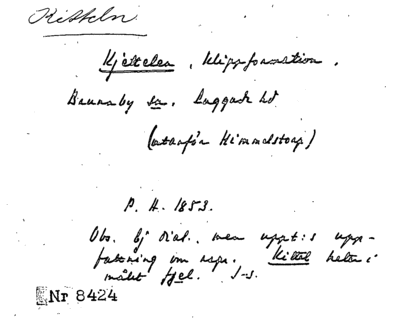 Kitteln.
Kjettelen, klippformation.
Brunnby sn. Luggude hd
(utanför Himmelstorp)
P. H. 1853.
Obs. Ej dial., men uppt:s upp-
fattning om sagr. Kittel heter i
målet
Nr 8424